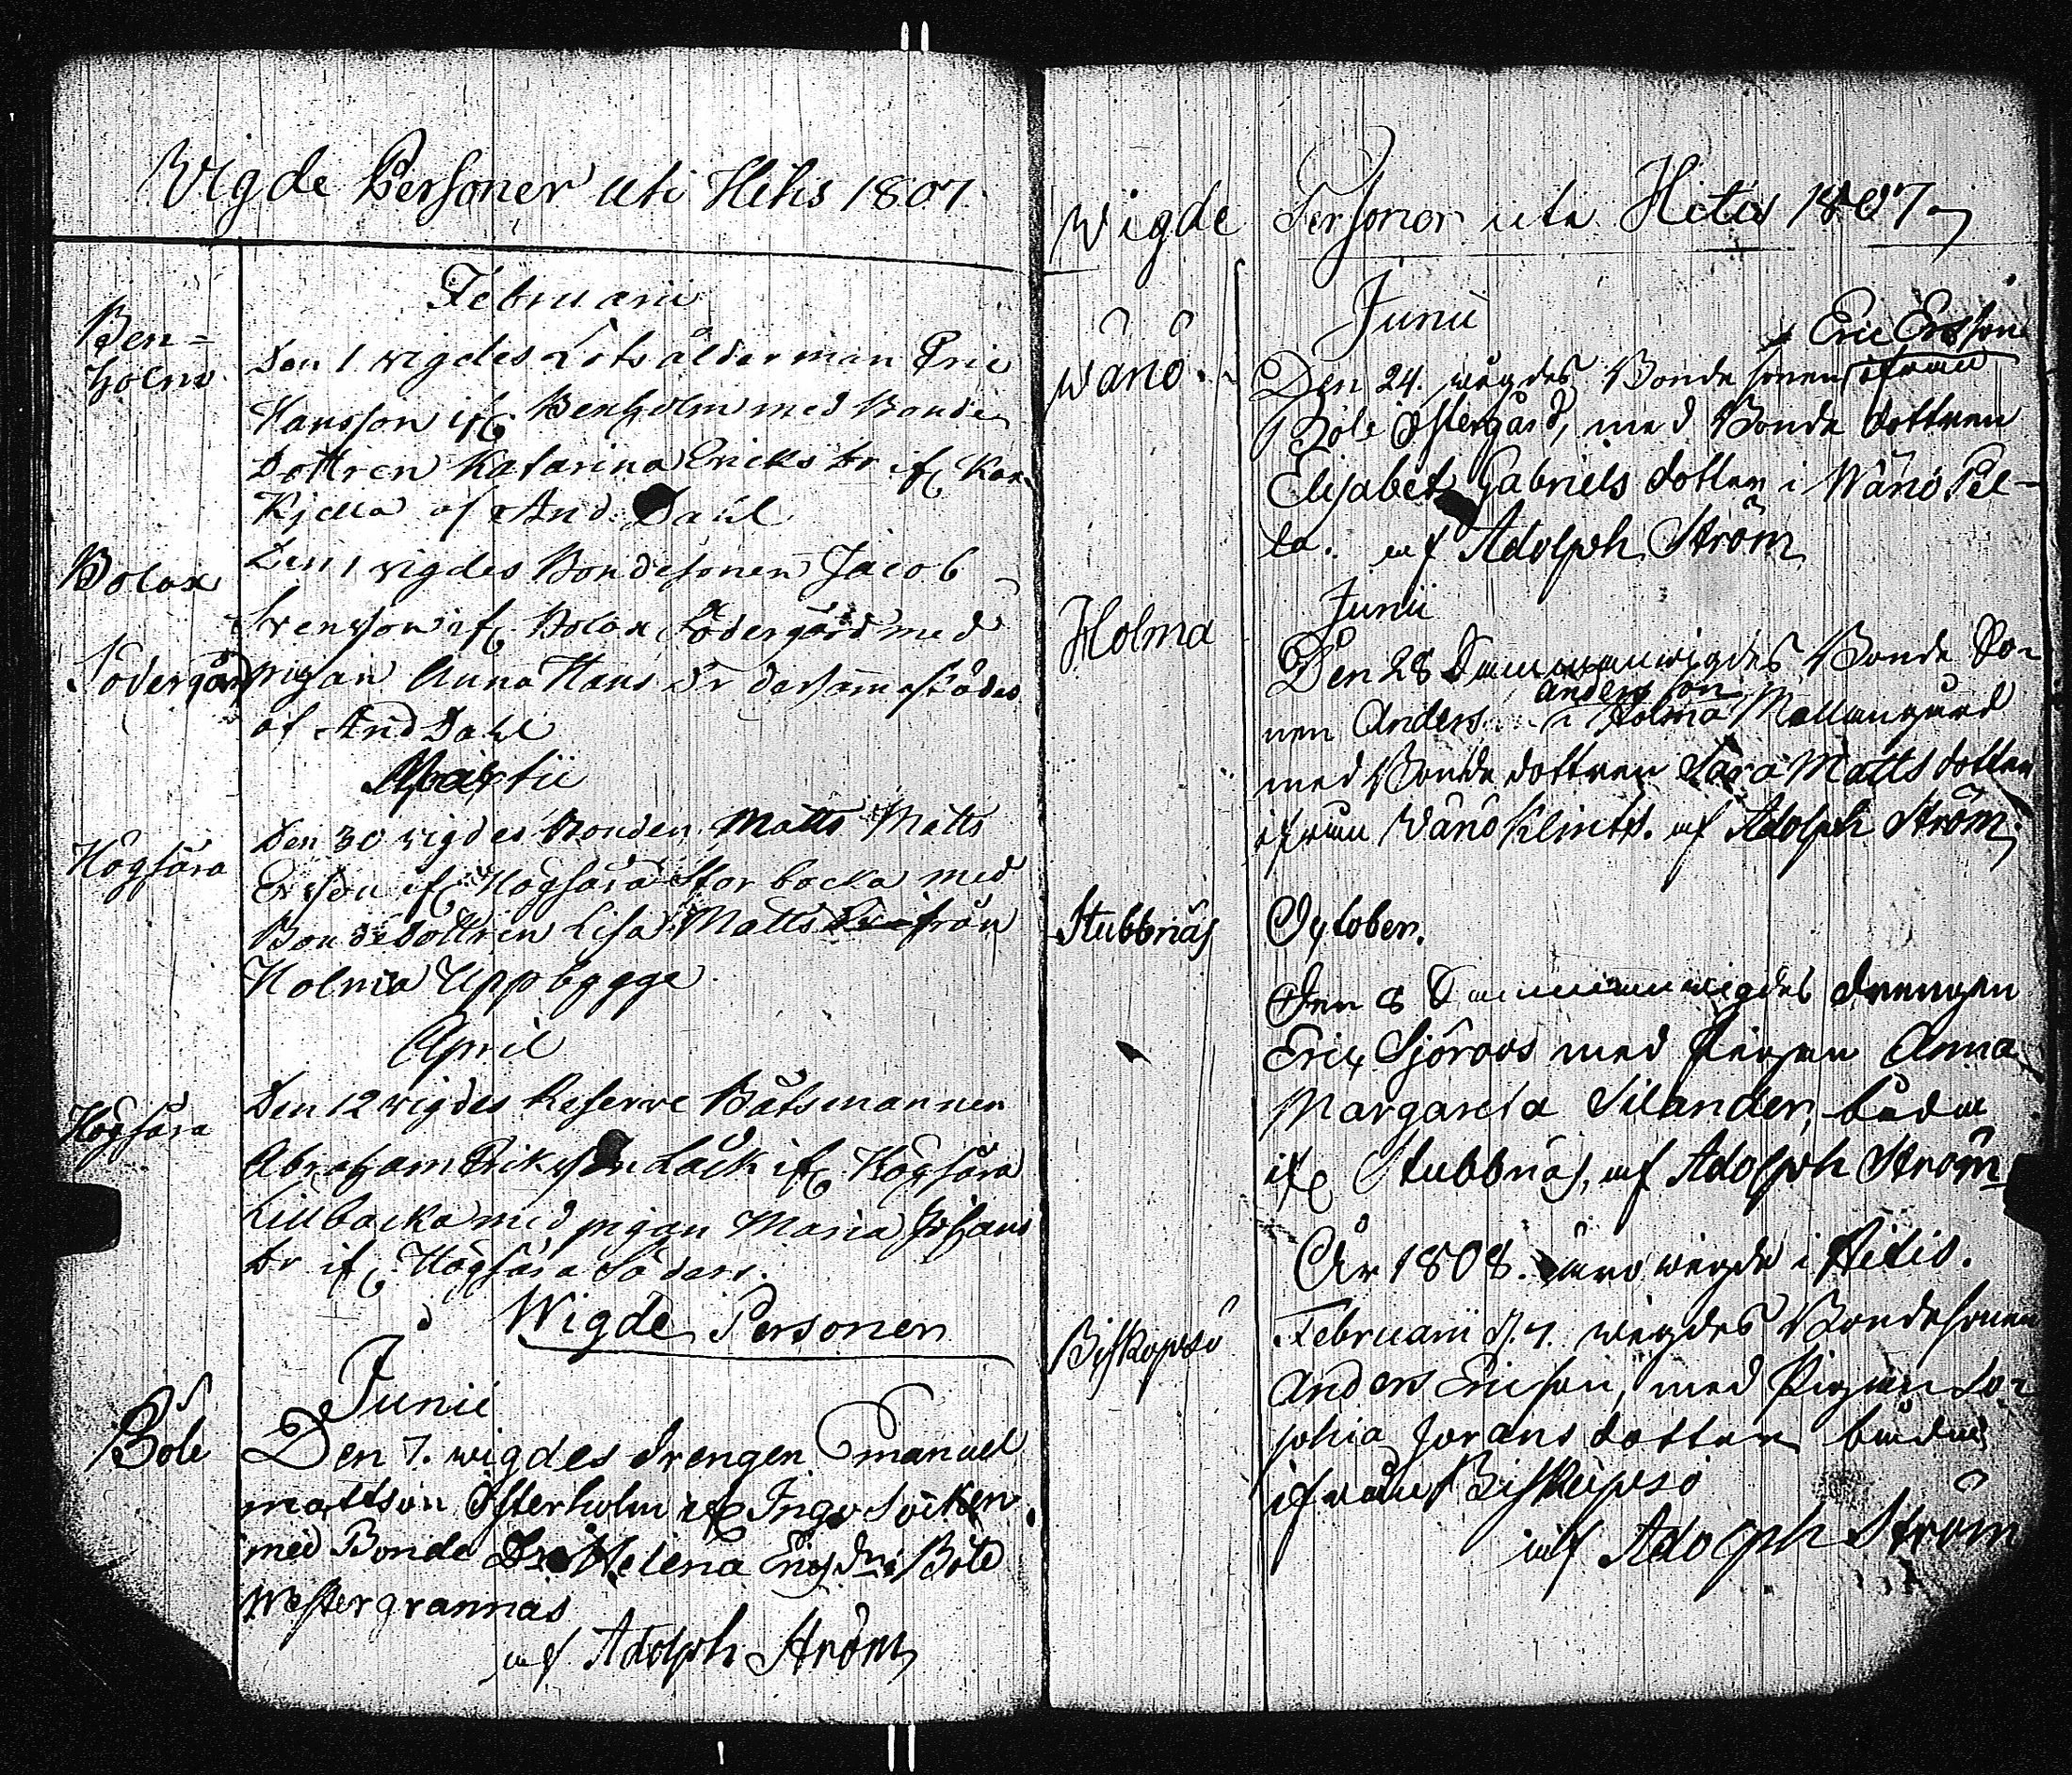 Wigde Personer uti Hitis 1807.
Februarii
Ben=
holm
Den 1 vigdes Lots ålderman Eric
Hansson if. Benholm med Bonde
Dottren Katarina Eriks dr if. Kor
Kjella af And: Dahl
Bolax
Södergård
Den 1 vigdes Bondesonen Jacob
Svensson if. Bolax Södergård med
pigan Anna Hans dr dersammastädes
af And Dahl
Martii
Högsåra
Den 30 vigdes Bonden Matts Matts
Erson if. Högsåra Storbacka med
Bondedottren Lisa Matts ifrån
Holma Uppbygge
April
Högsåra
Den 12 vigdes Reserve Båtsmannen
Abraham Erikson Låck if. Högsåra
Lillbacka med pigan Maria Johans
dr if. Högsåra Söders.
Wigde Personer
Junii
Böle
Den 7. wigdes drengen Emanuel
mattson Österholm if. Ingo Socken
med Bonde Dr Helena Ericsdr i Böle
Westergrannas
af Adolph Ström
Wigde Personer uti Hitis 1807
Junii
Wänö.
Eric Ersson
Den 24. wigdes Bonde sonen ifrån
Böle Östergård, med Bonde dottren
Elisabet Gabriels dotter i Wänö Pel-
la. af Adolph Ström
Junii
Holma
Den 28 Sammanwigdes Bonde So-
anders son
nen Anders i Holma Mellangård
med Bonde dottren Sara Matts dotter
ifrån Wänö Klints. af Adolph Ström
Stubbnäs
October.
Den 8 Sammanwigdes drengen
Eric Sjöroos med Pigan Anna
Margareta Silander, både
if. Stubbnäs, af Adolph Ström
År 1808. äro wigde i Hitis.
Biskopsö
Februarii d. 7. wigdes Bondesonen
Anders Ericson, med Pigan So-
phia Jorans dotter både
ifrån Biskopsö
af Adolph Ström